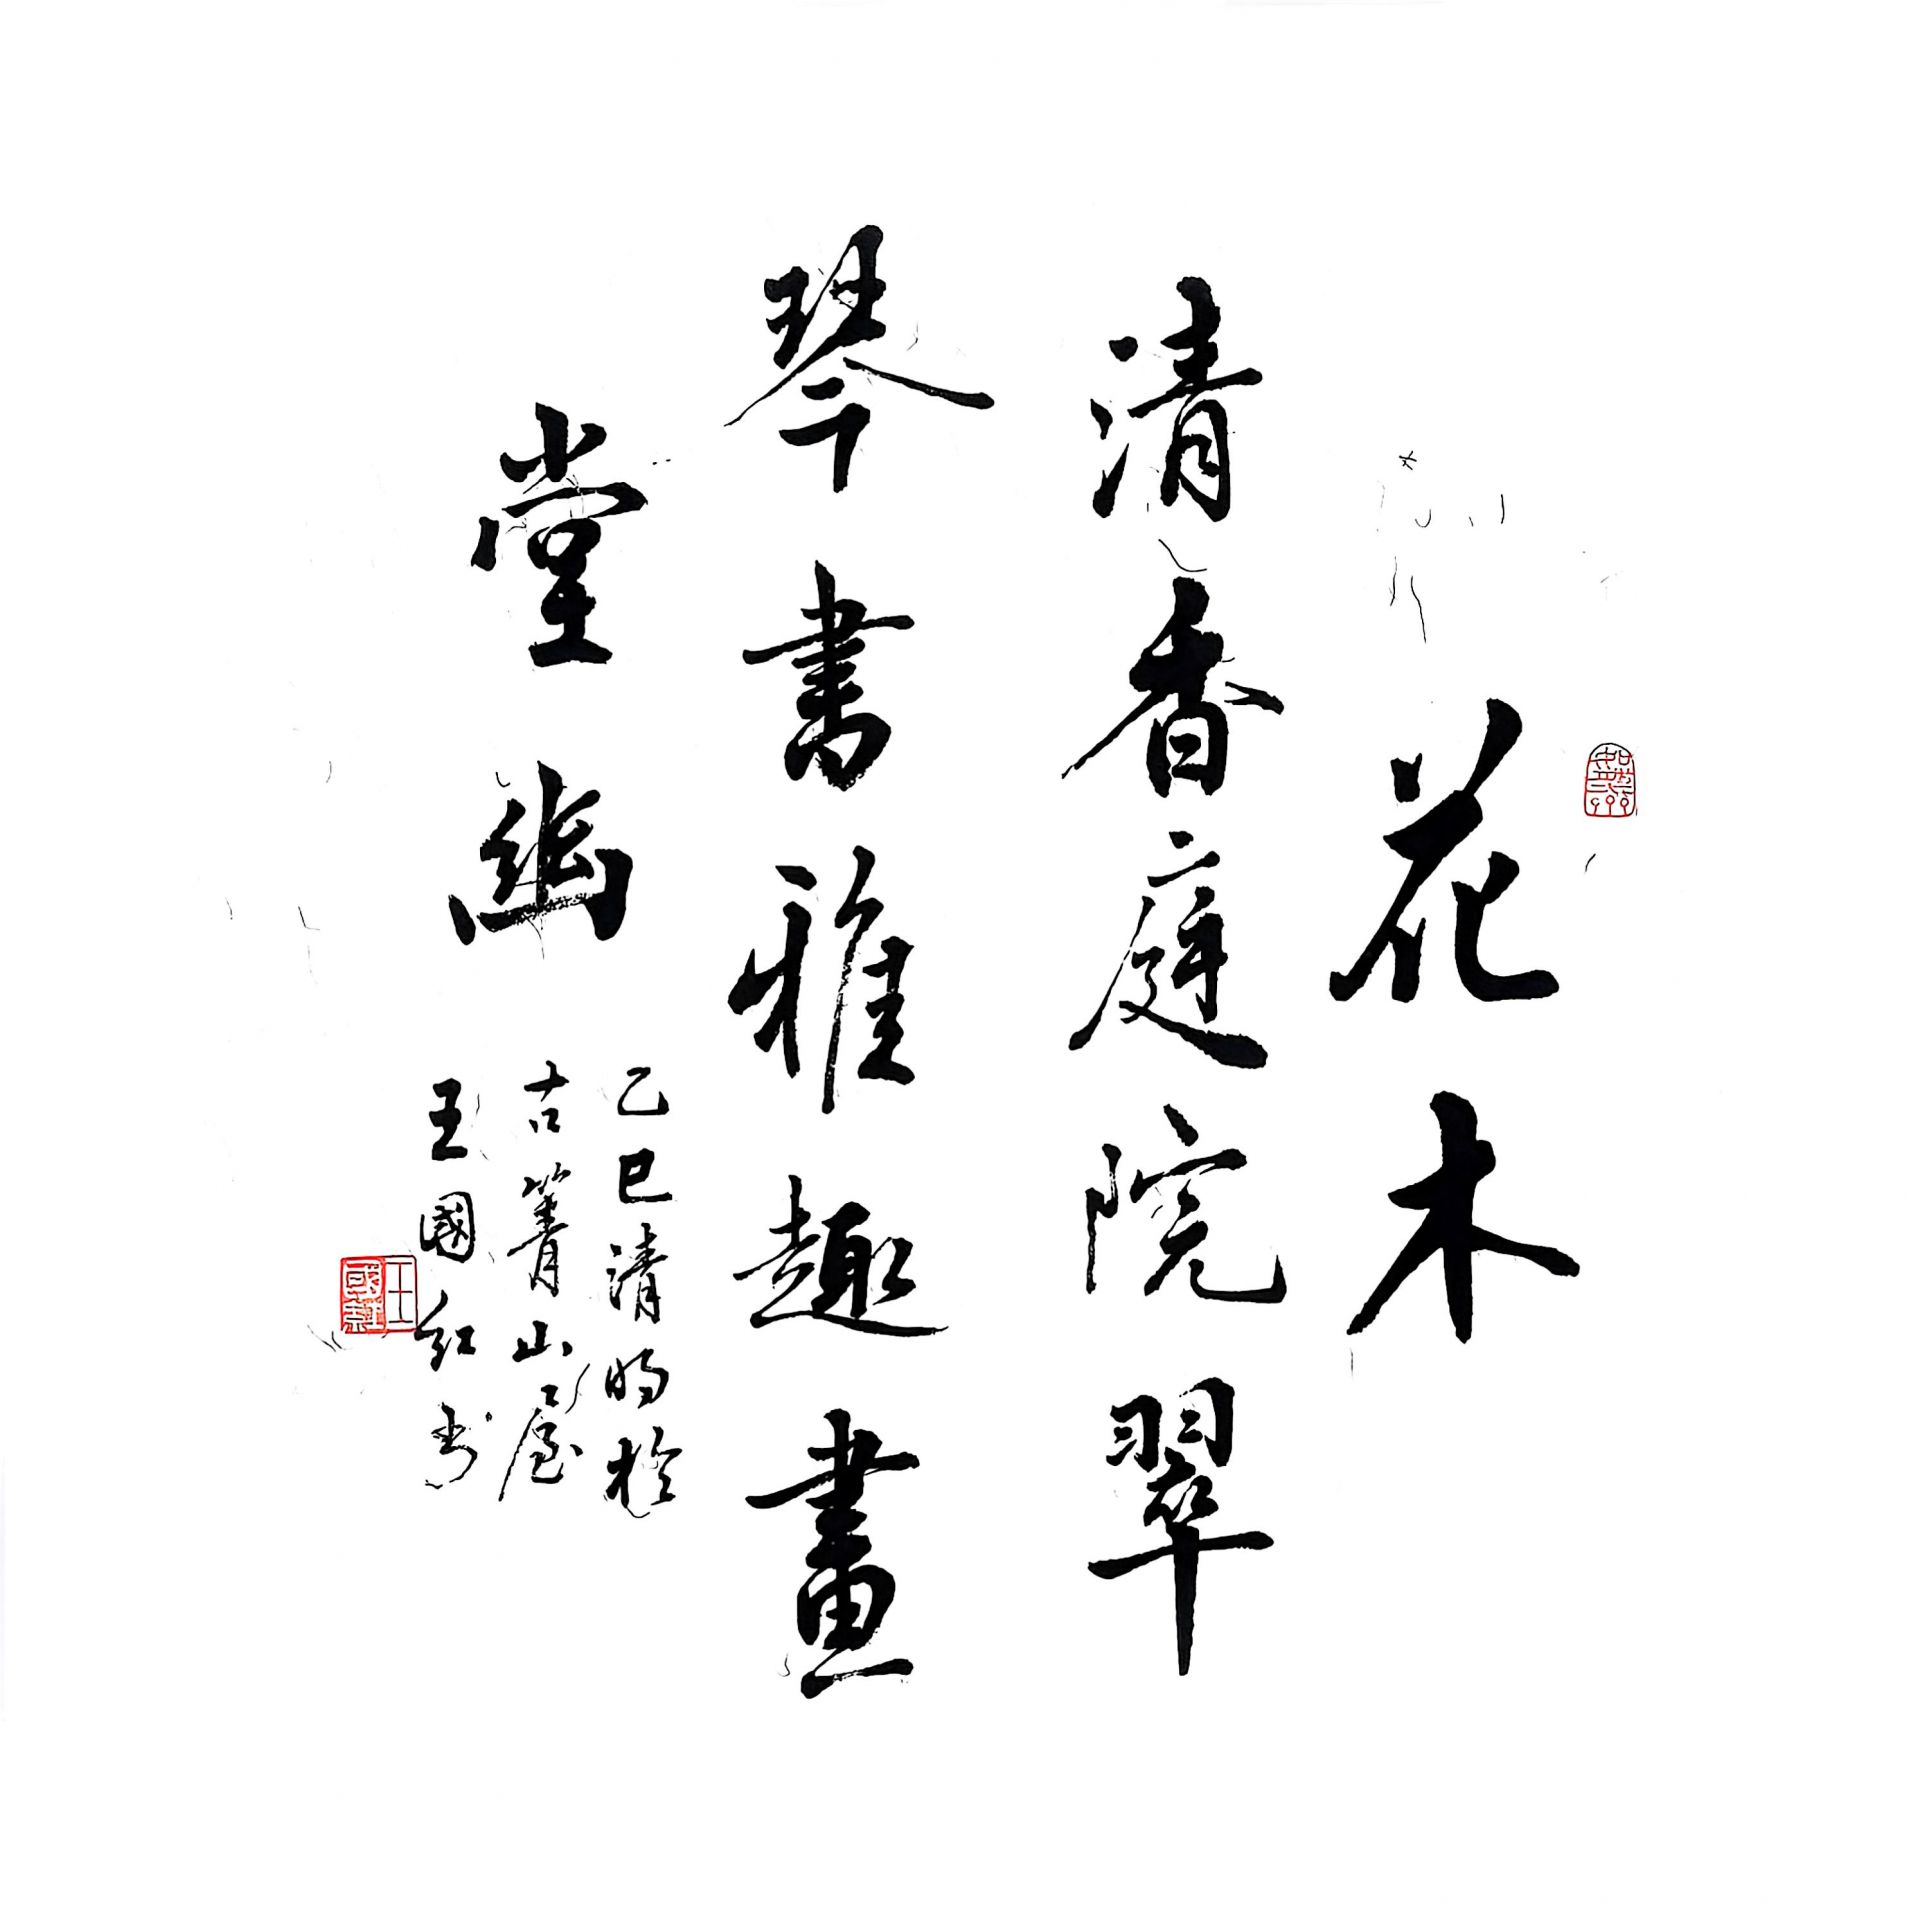 花木
清香庭院翠
琴書雅趣畫
堂幽
乙巳清明於
古箐山屋
王國红书
王國红